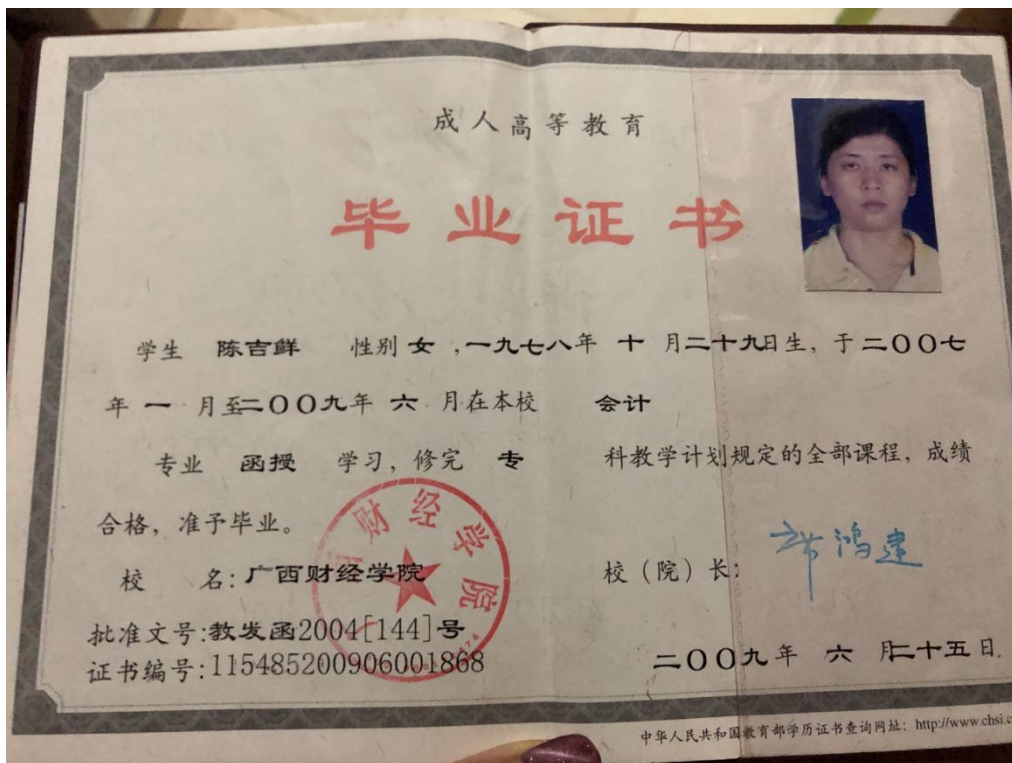 成人高等教育
毕业证书
学生 陈吉鲜 性别 女 ,一九七八年 十 月二十九日生, 于二〇〇七
年 一 月至二〇〇九年 六 月在本校 会计
专业 函授 学习, 修完 专 科教学计划规定的全部课程, 成绩
合格, 准予毕业。
校 名: 广西财经学院
校（院）长:
批准文号:教发函2004[144]号
证书编号:115485200906001868
二〇〇九年 六 月二十五日
财经学院
中华人民共和国教育部学历证书查询网址: http://www.chsi.c